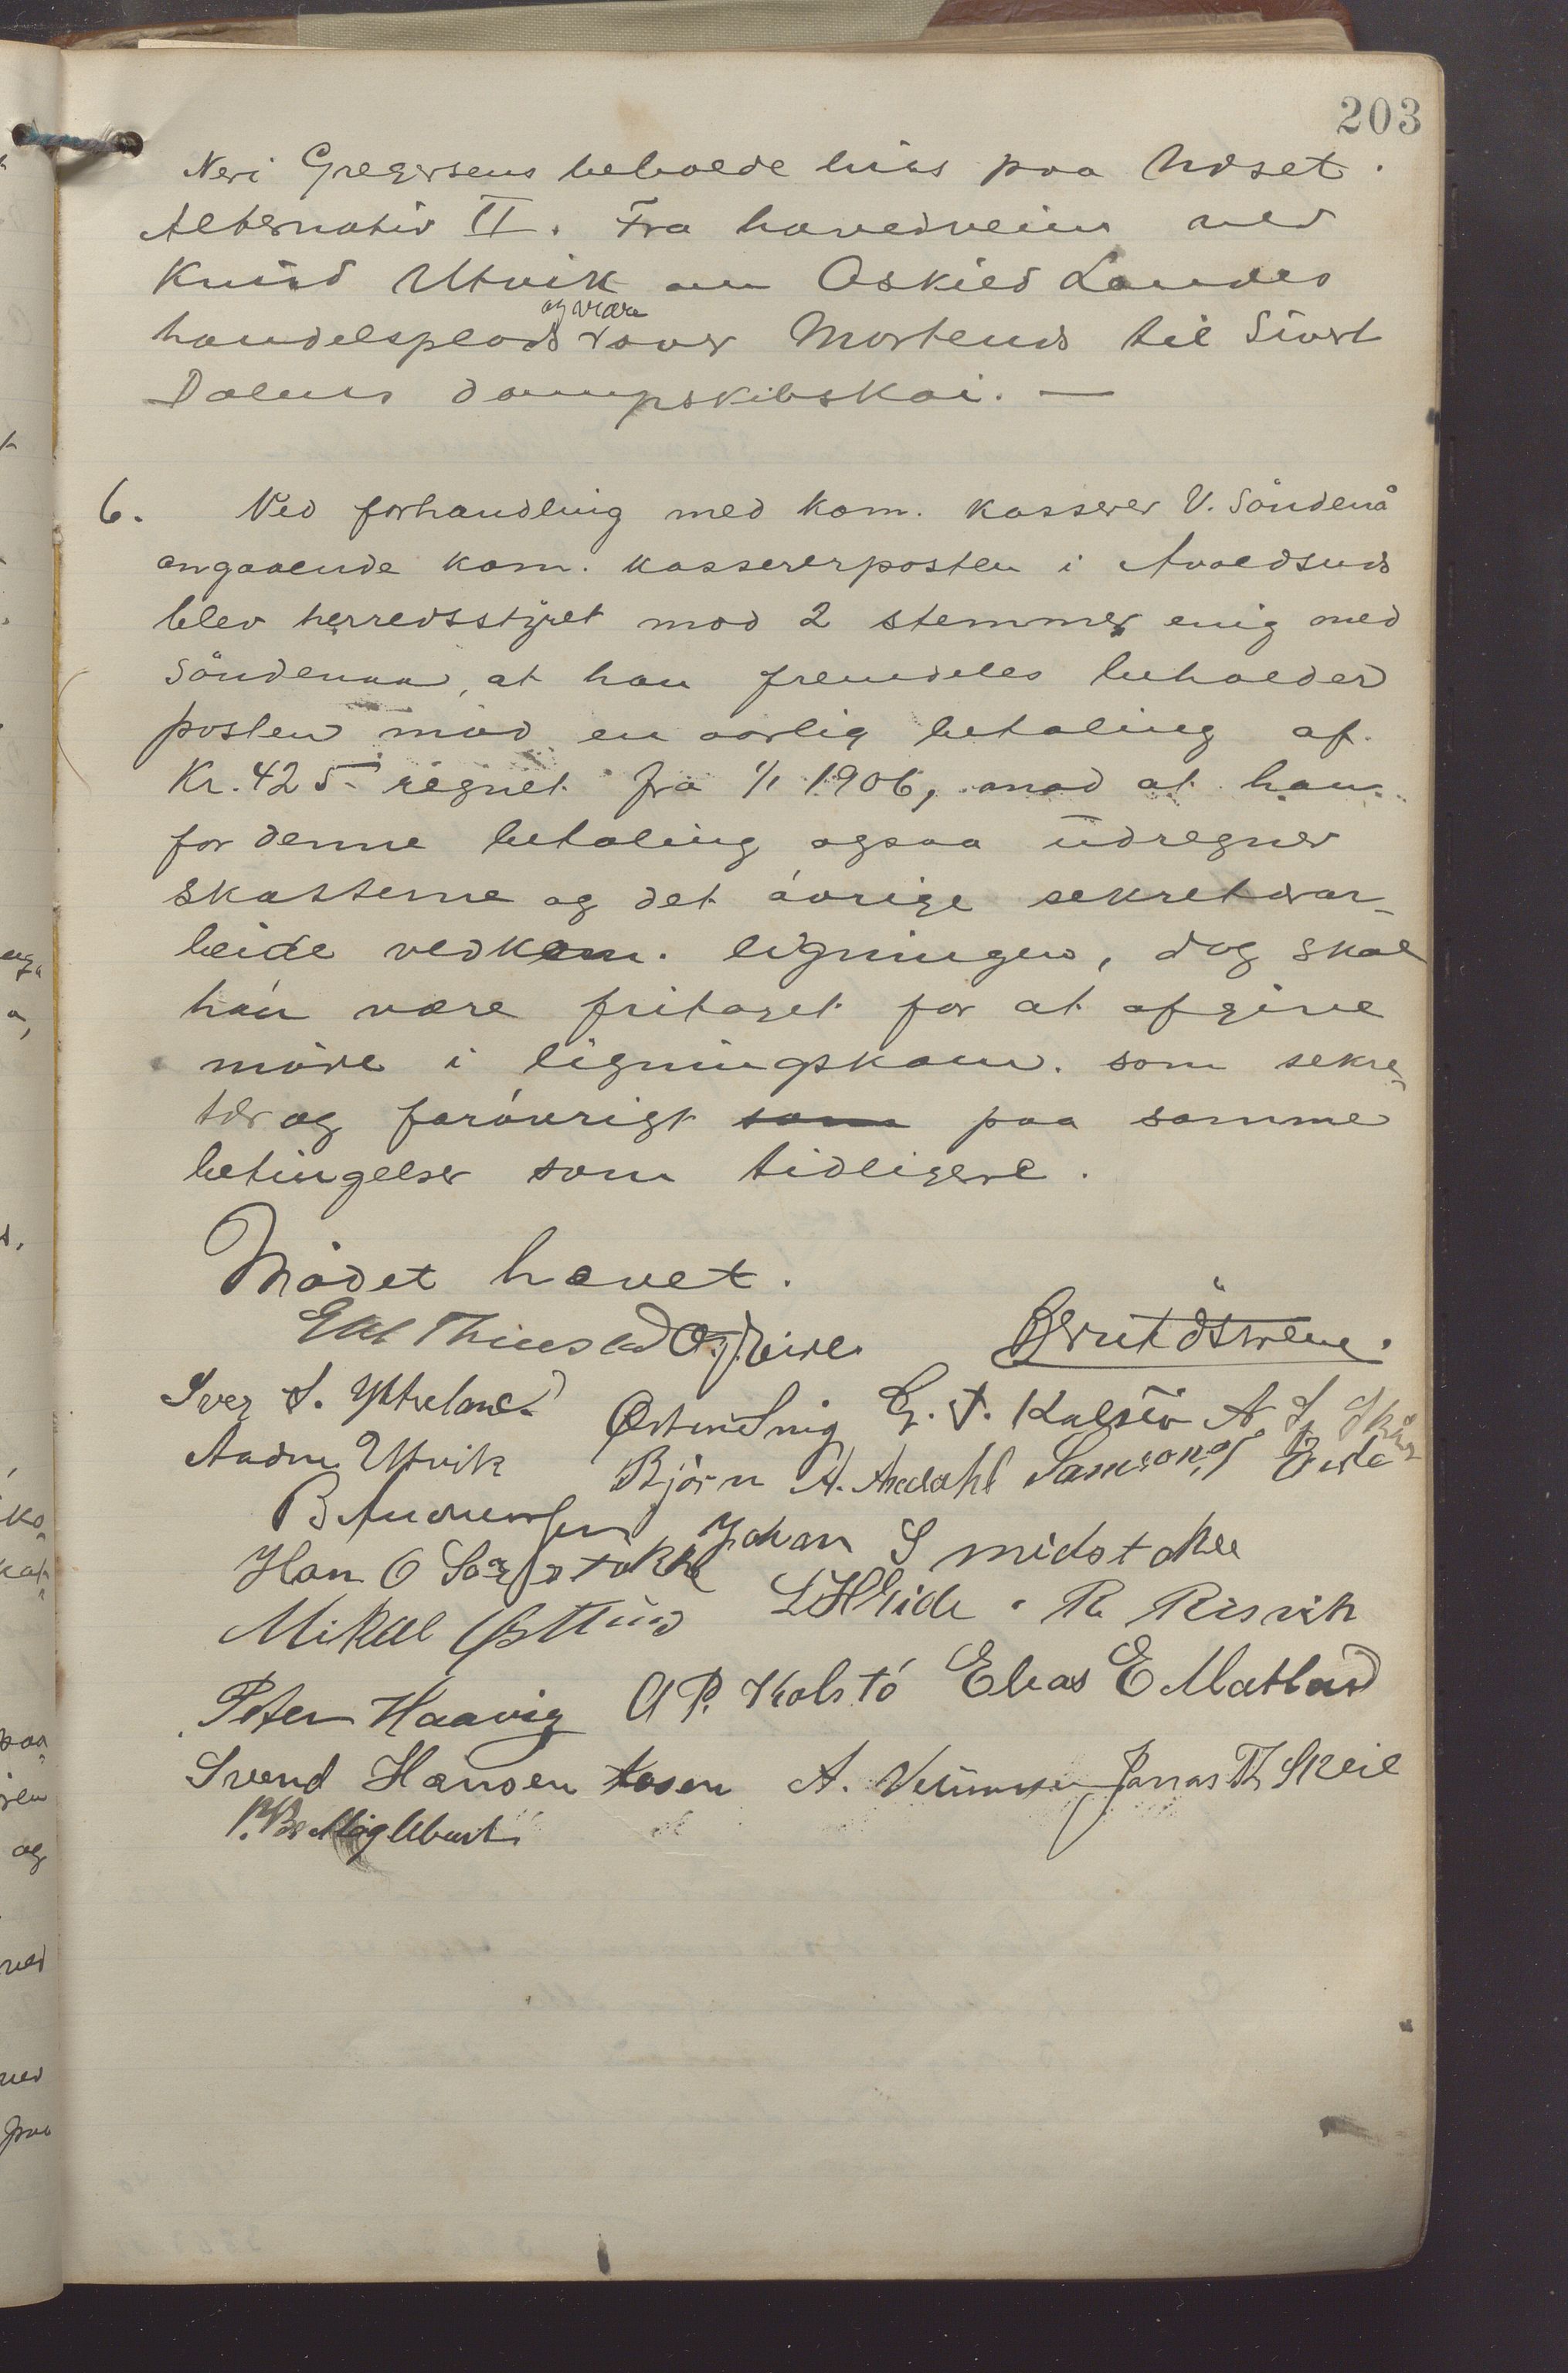 203
Neri Gregersens beboede hus paa Næset.
Alternativ II. Fra hovedveien ved
Knud Utvik om Oskild Landes
og videre
handelsplads over Mortens til Sivert
Dalens dampskibskai. —
6. Ved forhandling med kom. kasserer V. Söndenå
angaaende kom. kassererposten i Avaldsnes
blev herredsstyret mod 2 stemmer enig med
Söndenaa, at han fremdeles beholder
posten mod en aarlig betaling af
Kr. 425.- regnet fra 1/1 1906, mod at han
for denne betaling ogsaa udregner
skatterne og det övrige sekretærar-
beide vedkom. ligningen, dog skal
han være fritaget for at afgive
möde i ligningskom. som sekre-
tær og forövrigt som paa samme
betingelser som tidligere.
Mödet hævet.
Berent Östrem.
Iver S. Ytreland Østen Snig G. T. Kalstö A. L. Skår
Andr. Utvik Björn A. Aredahl Samson J. Eide
B Andreassen
Johan S midstokke
Han O Sörstokke
Mikal Østhus L H Eide. R. Risvik
Peter Haavig A P. Kolstö Elias E Matland
Svend Hansen Aasen A. Jonas Th Skeie